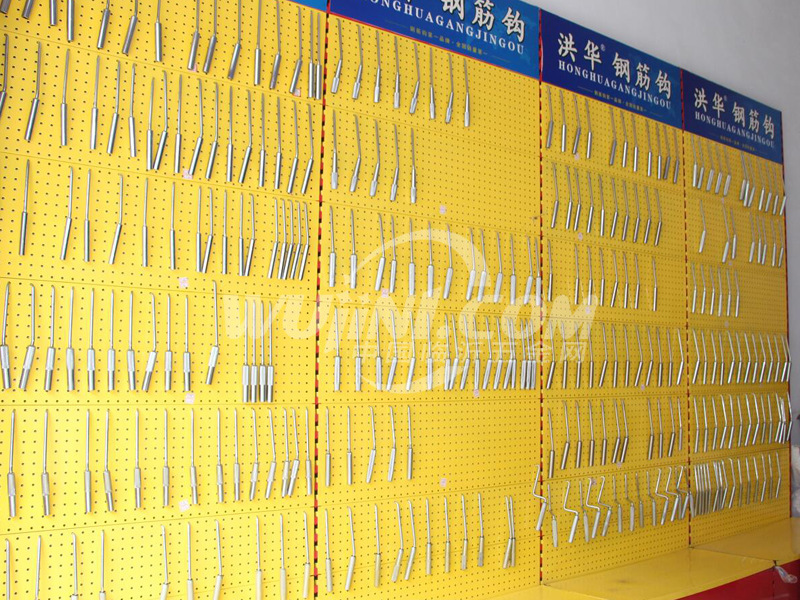 钢筋钩
HONGHUAGANGJINGOU
洪华®钢筋钩
HONGHUAGANGJINGOU
洪华®钢筋钩
HONGHUAGANGJINGOU
WUJINI.COM